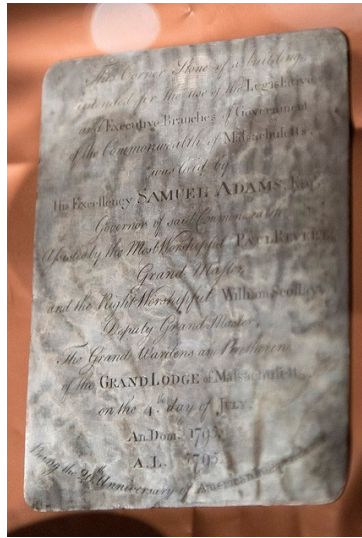 This Corner Stone of a building,
intended for the use of the Legislative
and Executive Branches of Government
of the Commonwealth of Massachusetts,
was laid by
His Excellency SAMUEL ADAMS, Esqr.
Governor of said Commonwealth,
Assisted by the Most Worshipful PAUL REVERE,
Grand Master,
and the Right Worshipful William Scollay,
Deputy Grand Master,
The Grand Wardens and Brethren
of the GRAND LODGE of Massachusetts,
on the 4th day of JULY,
An. Dom. 1795.
A.L. 5795.
Being the 20th Anniversary of American Independence